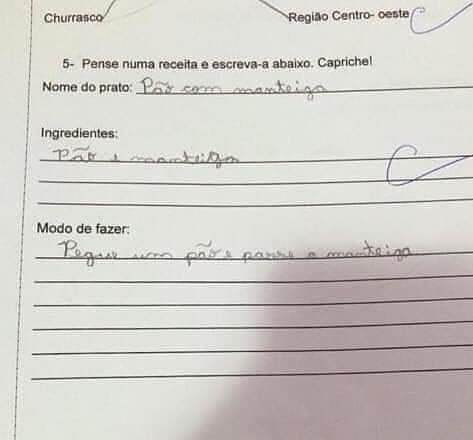 Churrasco Região Centro- oeste
5- Pense numa receita e escreva-a abaixo. Capriche!
Nome do prato: Pão com manteiga
Ingredientes:
Pão e manteiga
Modo de fazer:
Pegue um pão e passe a manteiga